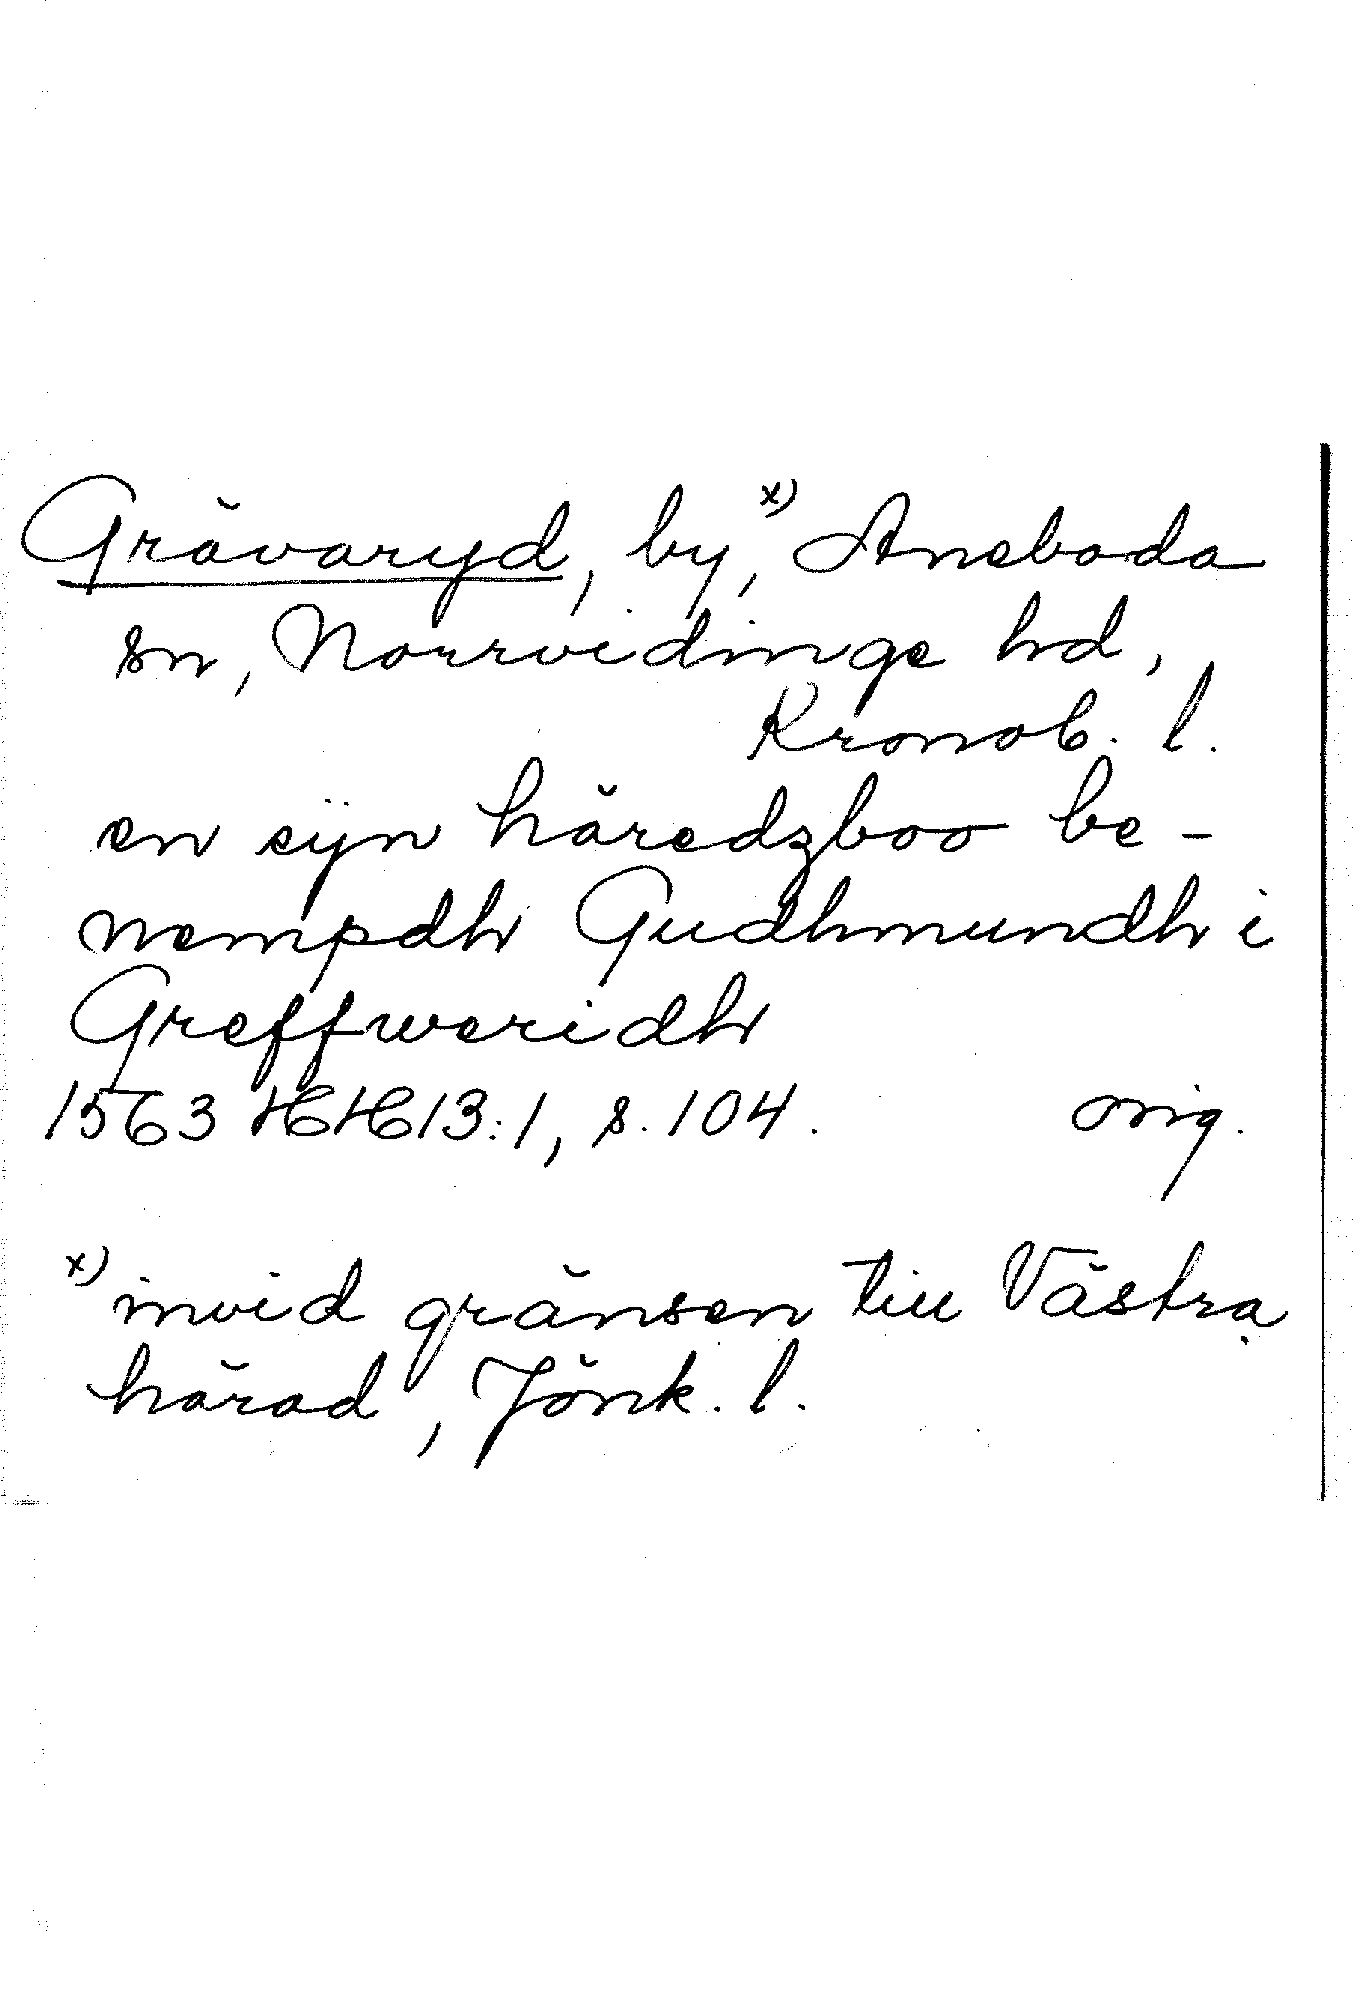 Grävaryd, by,x) Aneboda
sn, Norrvidinge hd,
Kronob. l.
en eÿn häredzboo be-
nempdh Gudhmundh i
Greffweridh
1563 HH 13:1, s. 104. orig.
x) invid gränsen till Västra
härad, Jönk. l.